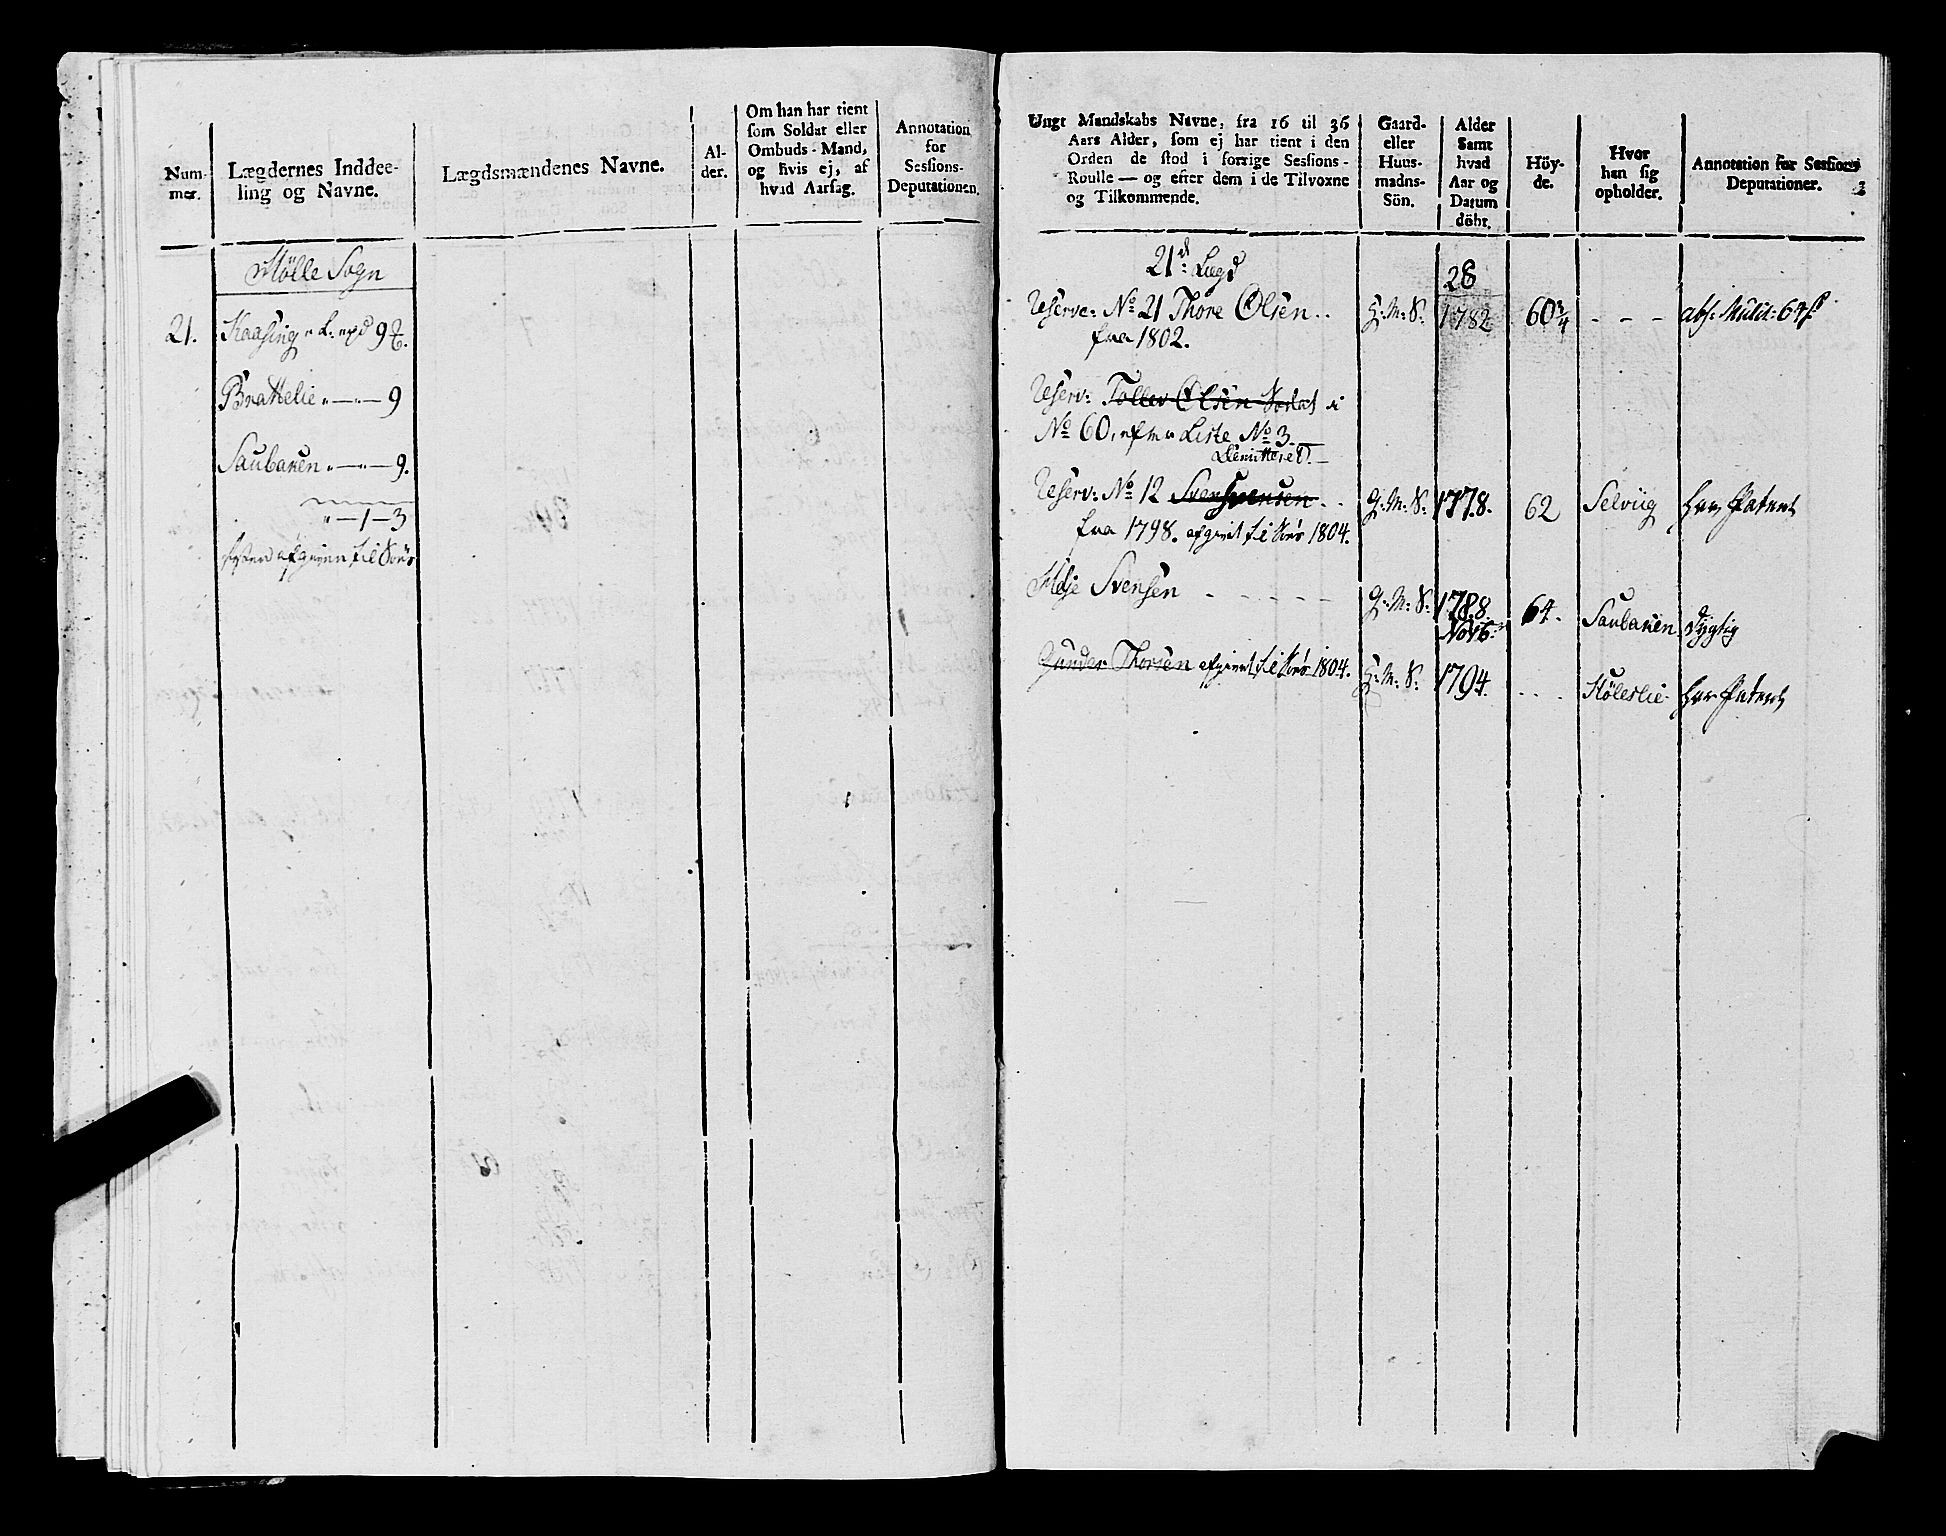 Num-
mer.
Lægdernes Inddee-
ling og Navne.
Lægdsmændenes Navne.
Al-
der.
Om han har tient
som Soldat eller
Ombuds-Mand,
og hvis ej, af
hvad Aarsag.
Annotation
for
Sessions-
Deputationen.
Hölle Sogn
21.
Kaasing
9
Brattelie 9
Saubaken 9.
1-3
afgiven til
Ungt Mandskabs Navne, fra 16 til 36
Aars Alder, som ej har tient i den
Orden de stod i forrige Sessions-
Roulle — og efter dem i de Tilvoxne
og Tilkommende.
Gaard-
eller
Huus-
madns-
Sön.
Alder
Samt
hvad
Aar og
Datum
döbt.
Höy-
de.
Hvor
han sig
opholder.
Annotation for Sessions
Deputationer.
21d: Lægd
28
Reserve: No 21 Thore Olsen.. H:M:S: 1782 60 3/4 - - -
fra 1802.
Reserv: Tollev Olsen i
No 60, Liste No 3.
Demitteret.
Reserv: No 12 Svensen.. G:M:S: 1778. 62 Selviig har Patent
fra 1798. afgivet til 1804.
Helje Svensen - - - - - G:M:S: 1788. 64. Saubaken dygtig
Nov
Gunder Thorsen afgivet til 1804. H:M:S: 1794. ... Höleslie har Patent